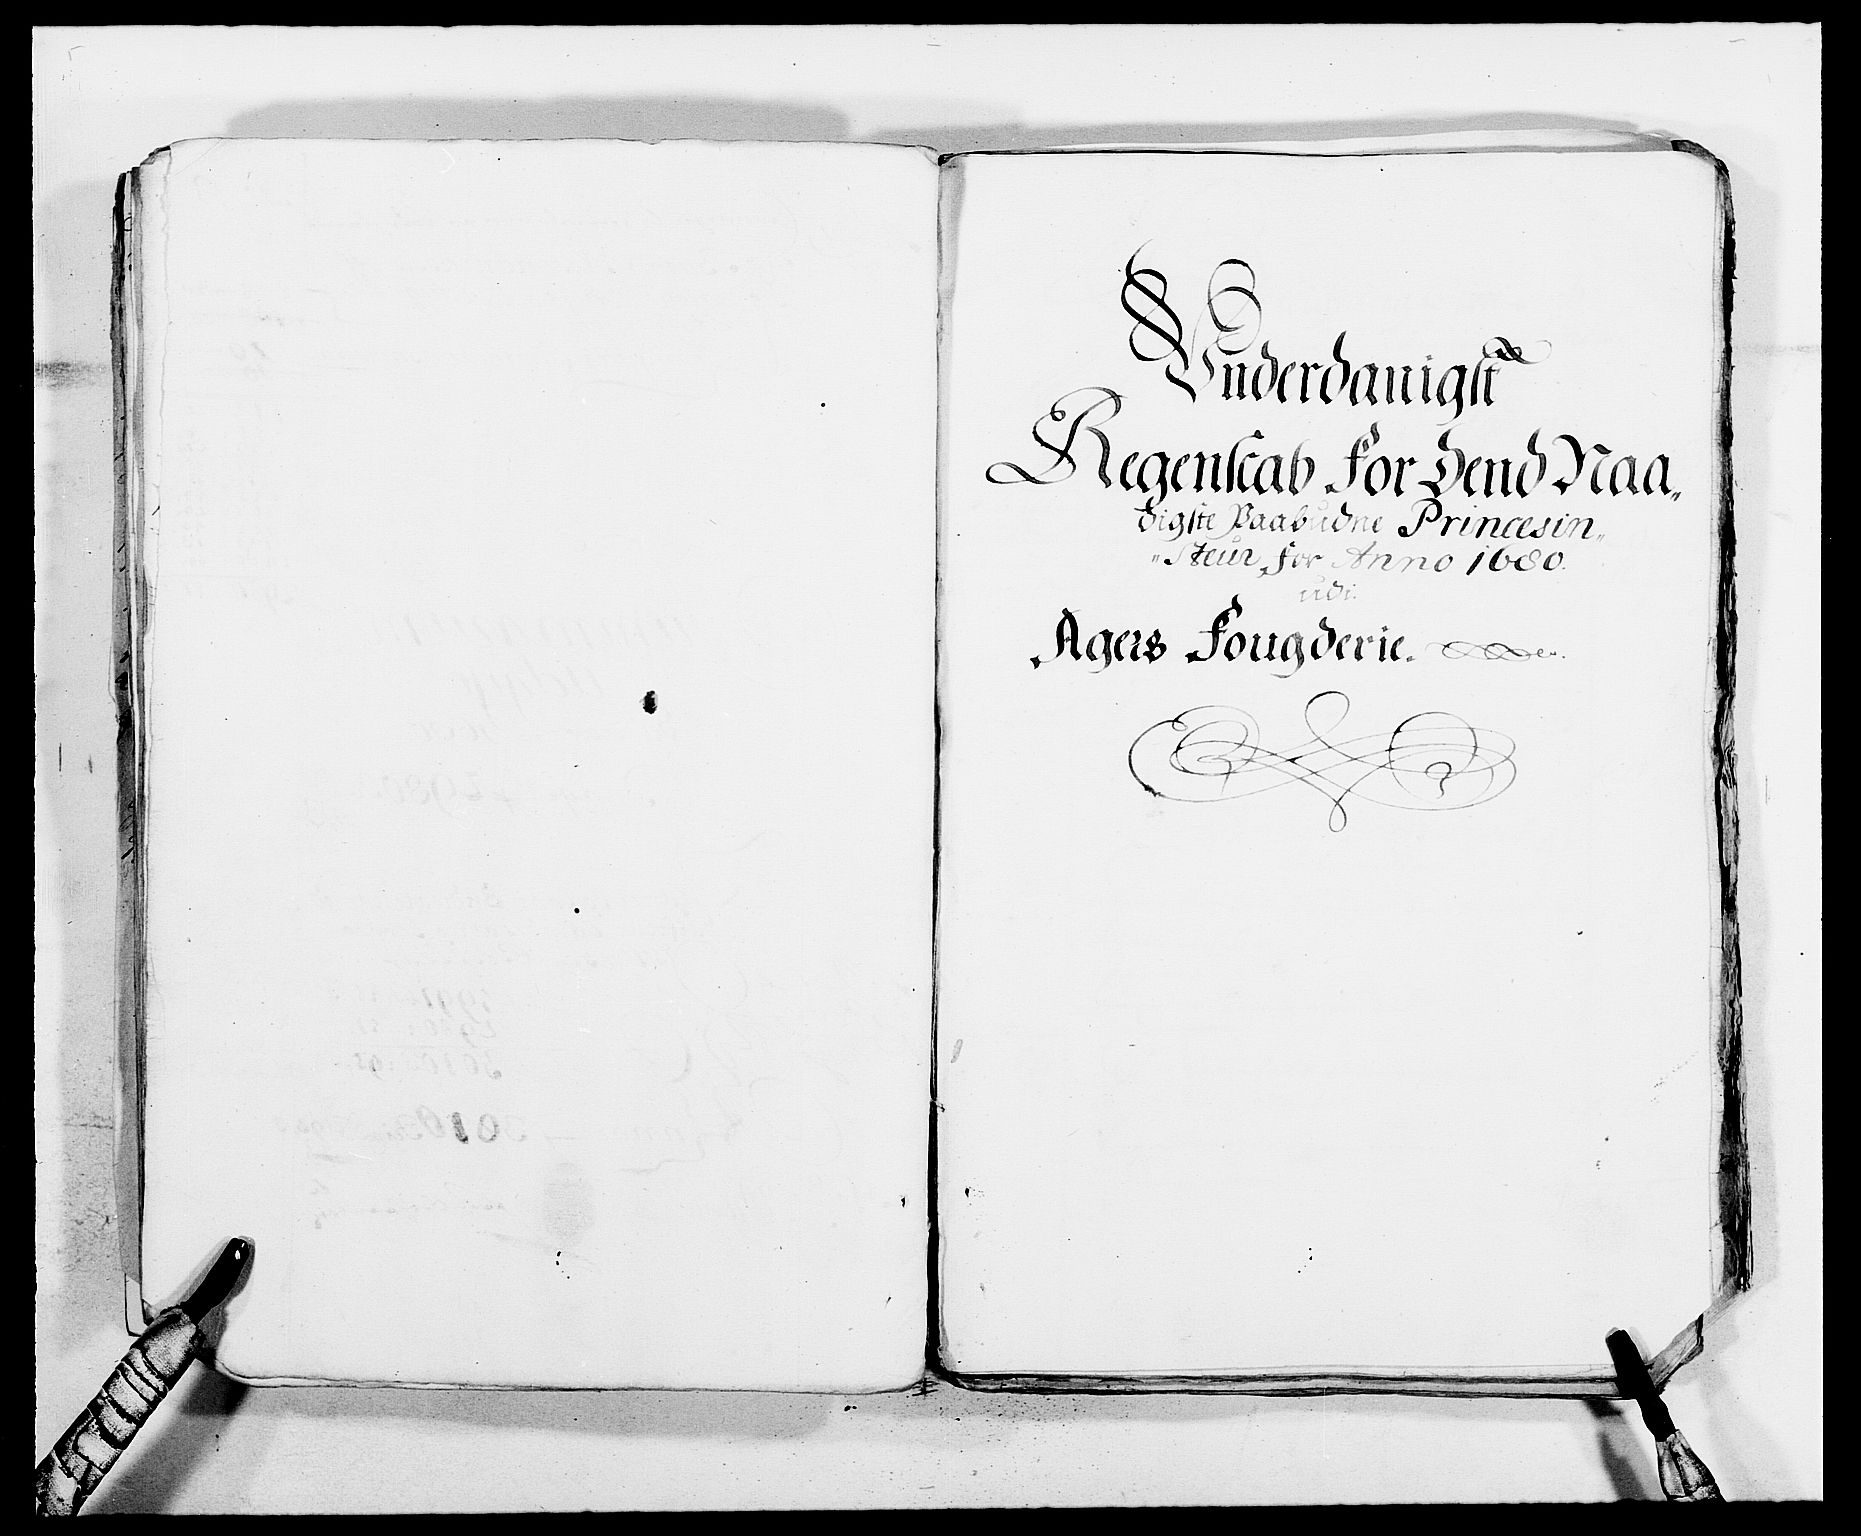 Vnderdanigst
Regenscab for Dend Naa„
digste Paabudne Princesin„
„Steur, for Anno 1680.
udi
Agers Fougderie.